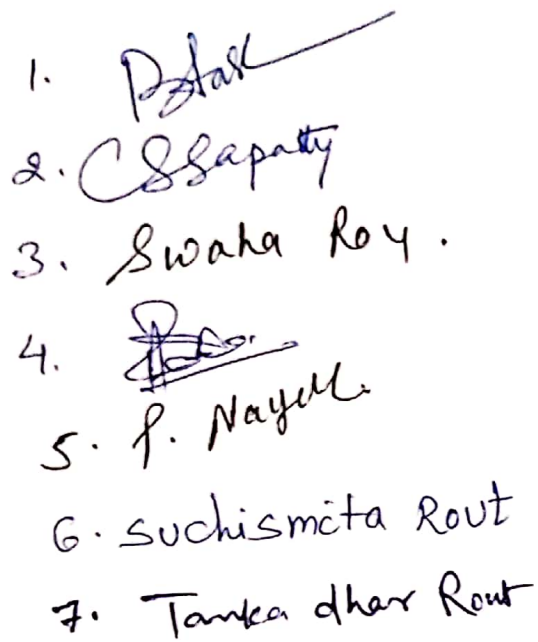 1.
2. CSSapatty
3. Swaha Roy.
4.
5. P. Nayak.
6. Suchismita Rout
7. Tanka dhar Rout